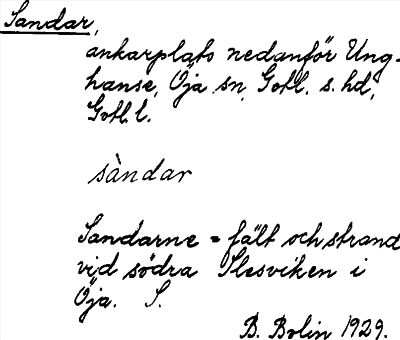 Sandar,
ankarplats nedanför Ung-
hanse, Öja sn, Gotl. s. hd,
Gotl. l.
sàndar
Sandarne = fält och strand
vid södra Slesviken i
Öja. S.
B. Bolin 1929.